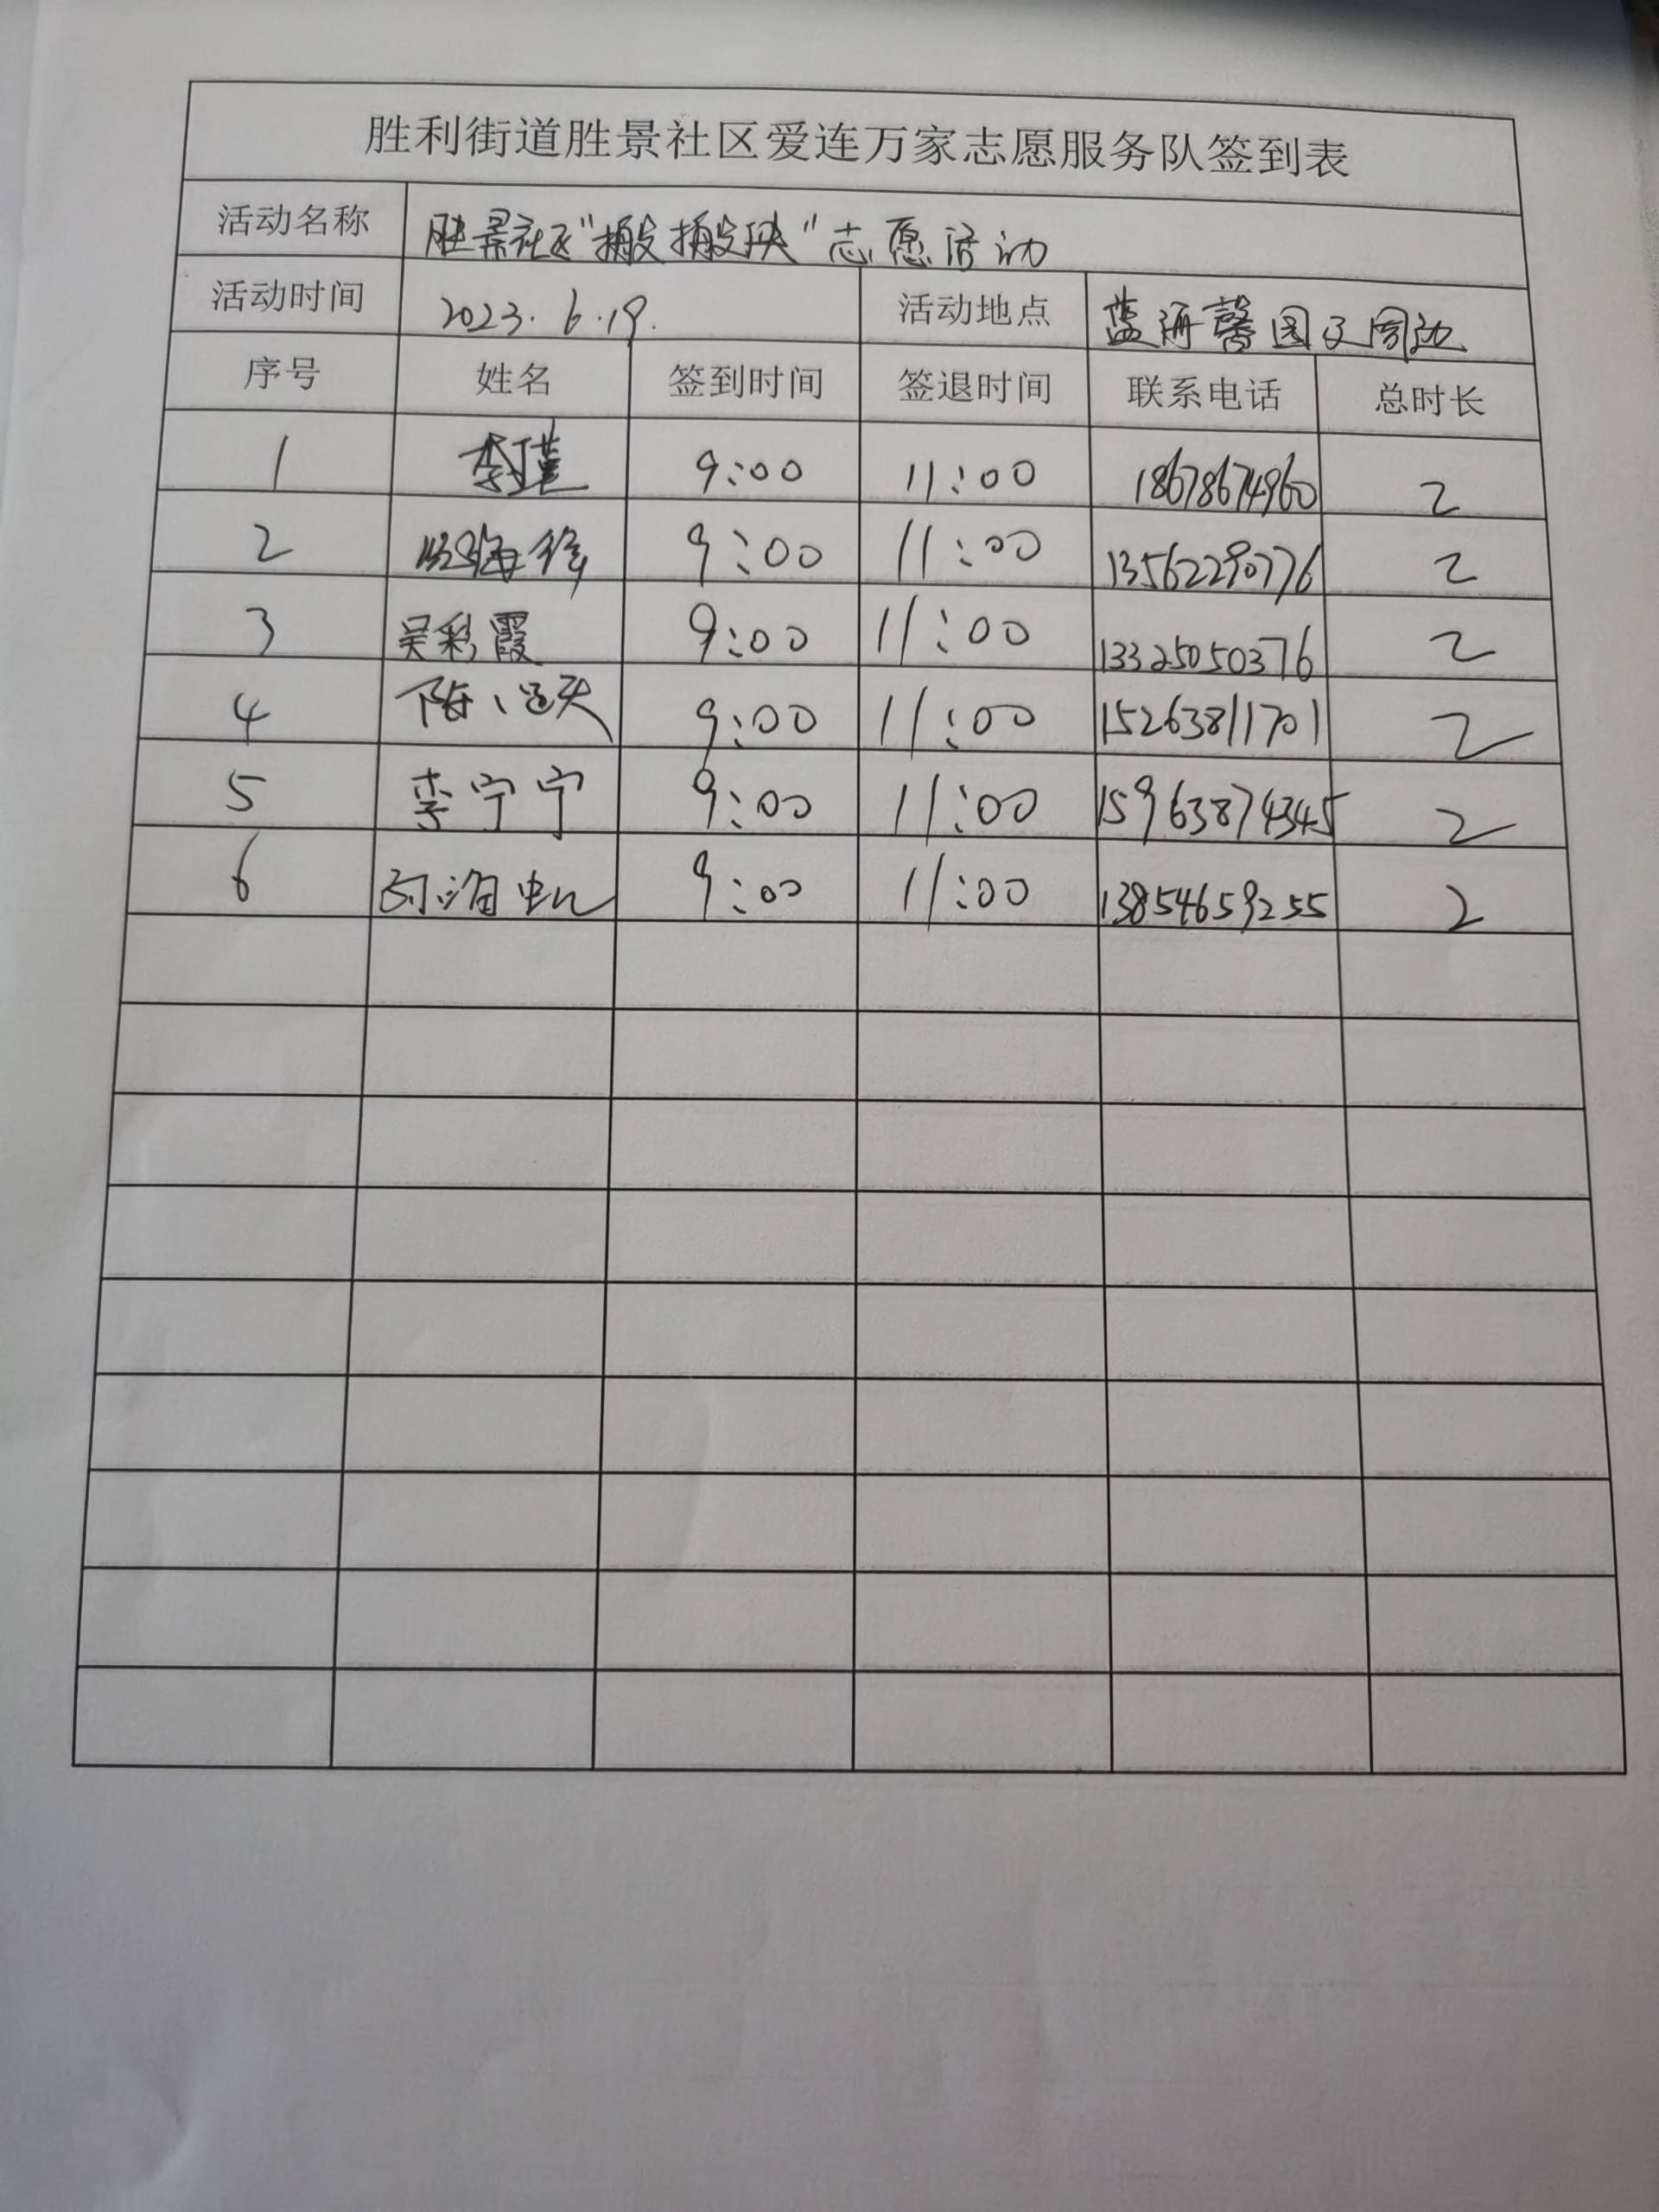 胜利街道胜景社区爱连万家志愿服务队签到表
活动名称 胜景社区"搬搬队"志愿活动
活动时间 2023.6.19. 活动地点 蓝海馨园及周边
序号 姓名 签到时间 签退时间 联系电话 总时长
1 李瑾 9:00 11:00 18678674960 2
2 9:00 11:00 13562290776 2
3 吴彩霞 9:00 11:00 13325050376 2
4 9:00 11:00 15263811701 2
5 李宁宁 9:00 11:00 15963874345 2
6 9:00 11:00 13854659255 2